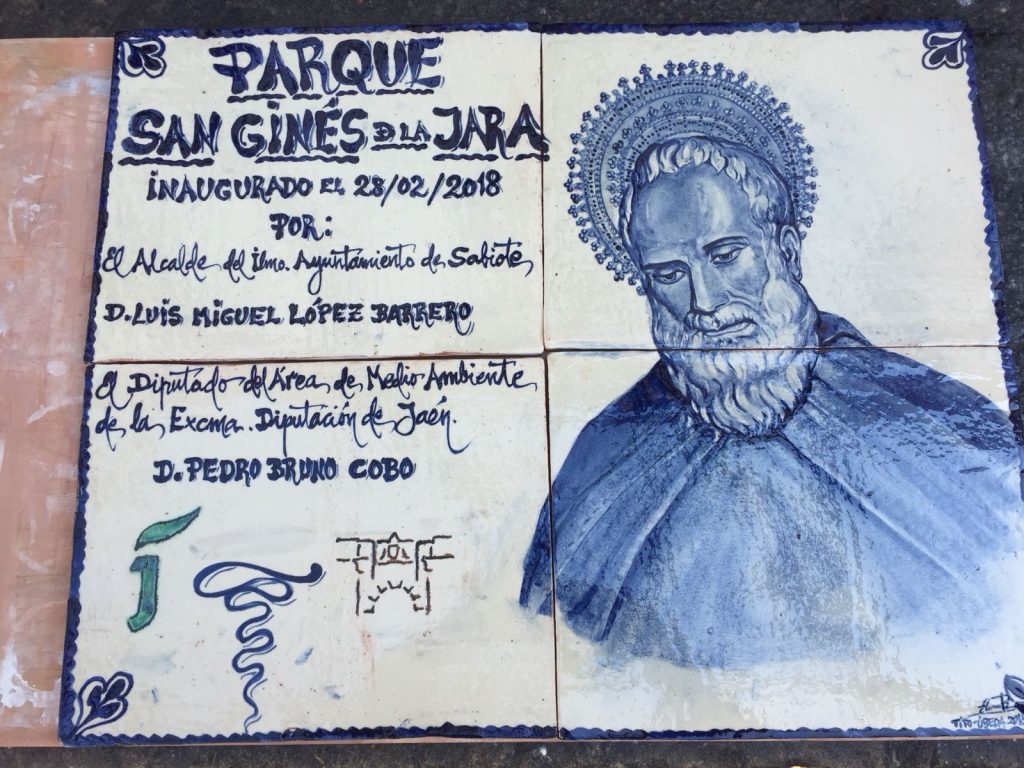 PARQUE
SAN GINÉS D LA JARA
INAUGURADO EL 28/02/2018
POR:
El Alcalde del Ilmo. Ayuntamiento de Sabiote,
D. LUIS MIGUEL LÓPEZ BARRERO
El Diputado del Área de Medio Ambiente
de la Excma. Diputación de Jaén.
D. PEDRO BRUNO COBO
j
TITO-ÚBEDA